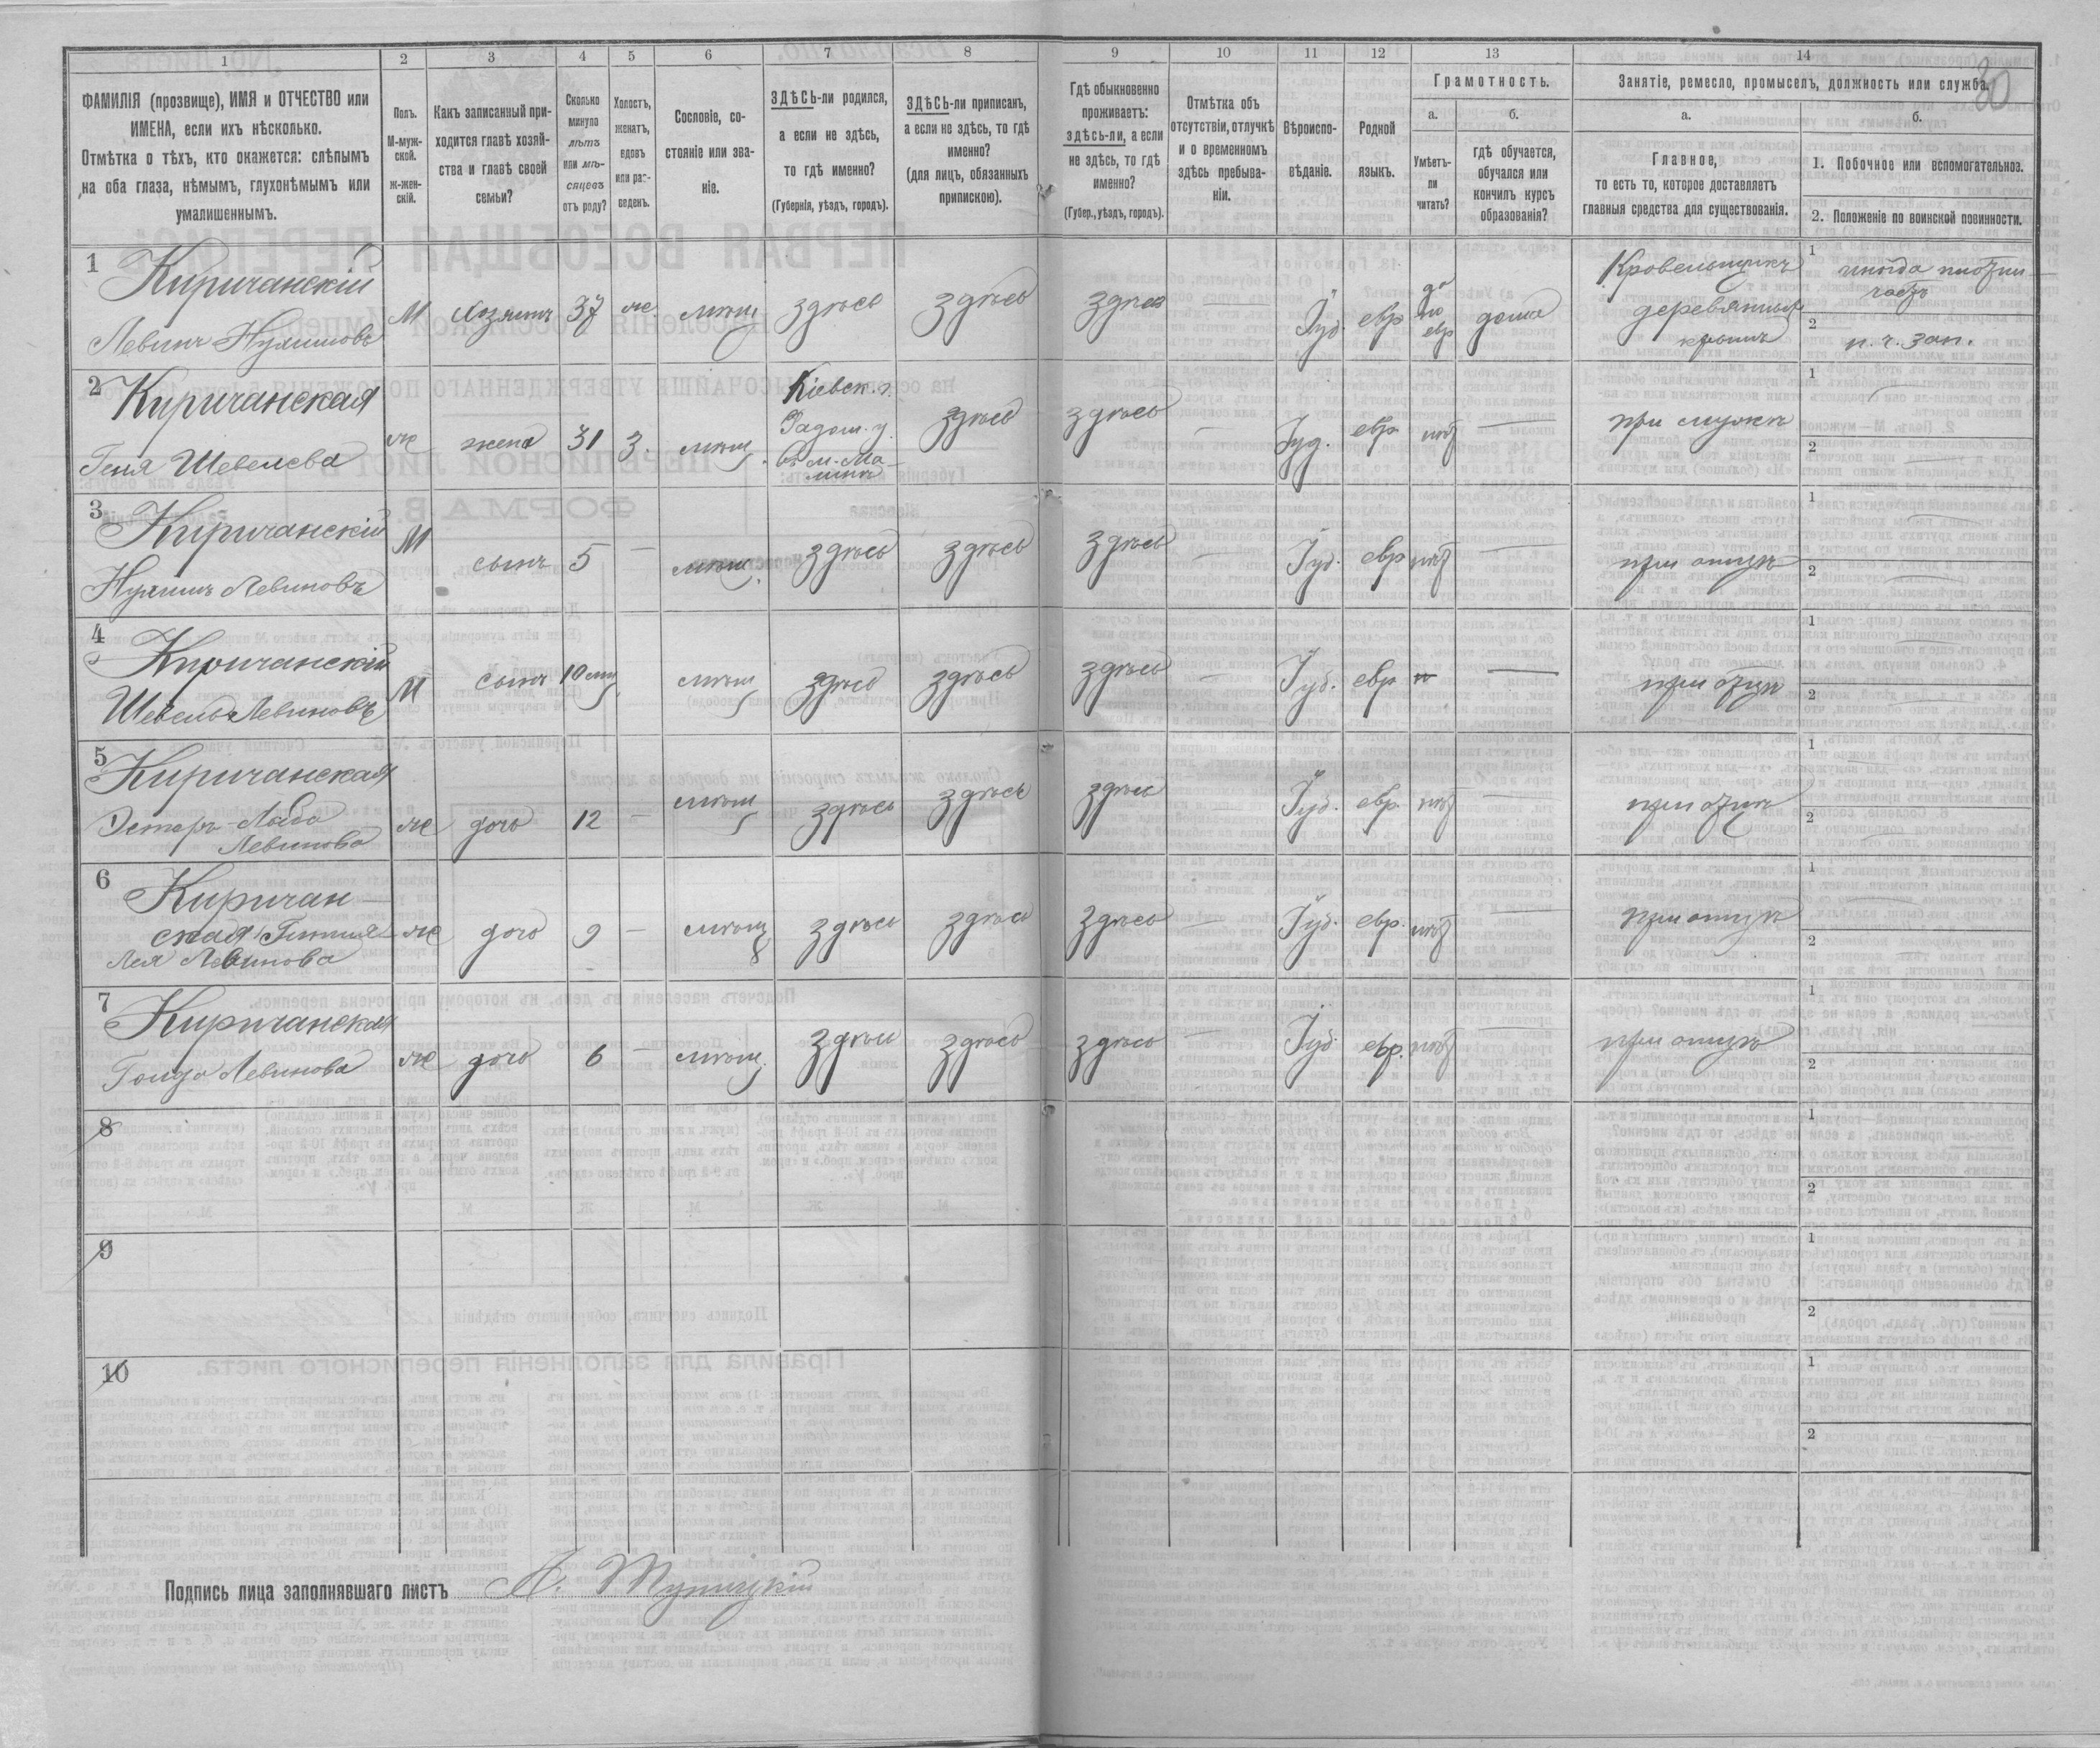 30
1 2 3 4 5 6 7 8 9 10 11 12 13 14
ФАМИЛІЯ (прозвище), ИМЯ и ОТЧЕСТВО или
ИМЕНА, если ихъ нѣсколько.
Отмѣтка о тѣхъ, кто окажется: слѣпымъ
на оба глаза, нѣмымъ, глухонѣмымъ или
умалишеннымъ.
Полъ.
М-муж-
ской.
ж-жен-
скій.
Какъ записанный при-
ходится главѣ хозяй-
ства и главѣ своей
семьи?
Сколько
минуло
лѣтъ
или мѣ-
сяцевъ
отъ роду?
Холостъ,
женатъ,
вдовъ
или раз-
веденъ.
Сословіе, со-
стояніе или зва-
ніе.
ЗДѢСЬ-ли родился,
а если не здѣсь,
то гдѣ именно?
(Губернія, уѣздъ, городъ).
ЗДѢСЬ-ли приписанъ,
а если не здѣсь, то гдѣ
именно?
(для лицъ, обязанныхъ
припискою).
Гдѣ обыкновенно
проживаетъ:
здѣсь-ли, а если
не здѣсь, то гдѣ
именно?
(Губер., уѣздъ, городъ).
Отмѣтка объ
отсутствіи, отлучкѣ
и о временномъ
здѣсь пребыва-
ніи.
Вѣроиспо-
вѣданіе.
Родной
языкъ.
Грамотность.
а.
Умѣетъ-
ли
читать?
б.
гдѣ обучается,
обучался или
кончилъ курсъ
образованія?
Занятіе, ремесло, промыселъ, должность или служба.
а.
Главное,
то есть то, которое доставляетъ
главныя средства для существованія.
б.
1. Побочное или вспомогательное.
2. Положеніе по воинской повинности.
1
Киричанскій
Левинъ Нухимовъ
М хозяинъ 37 ж мѣщ здѣсь здѣсь здѣсь — Іуд. евр
да
по
евр
дома
Кровельщикъ
деревянныхъ
крышъ
1
иногда плотни-
чаетъ
2
н. ч. зап.
2
Киричанская
Геня Шевелева
ж жена 31 з. мѣщ.
Кіевск. г.
Радом. у.
въ м. Ма-
линѣ
здѣсь здѣсь — Іуд. евр нѣт — при мужѣ
1 —
2 —
3
Киричанскій
Нухимъ Левиновъ
М сынъ 5 — мѣщ. здѣсь здѣсь здѣсь — Іуд. евр нѣт — при отцѣ
1 —
2 —
4
Киричанскій
Шевель Левиновъ
М сынъ 10 мц. мѣщ здѣсь здѣсь здѣсь — Іуд. евр н — при отцѣ
1 —
2 —
5
Киричанская
Эстеръ-Лабо
Левинова
ж дочь 12 — мѣщ здѣсь здѣсь здѣсь — Іуд. евр. нѣт — при отцѣ
1 —
2 —
6
Киричан-
ская
Лея Левинова
ж дочь 9 — мѣщ здѣсь здѣсь здѣсь — Іуд. евр. нѣт — при отцѣ
1
2
7
Киричанская
Левинова
ж дочь 6 — мѣщ. здѣсь здѣсь здѣсь — Іуд. евр. нѣт — при отцѣ
1
2
8
1
2
9
1
2
10
1
2
Подпись лица заполнявшаго листъ